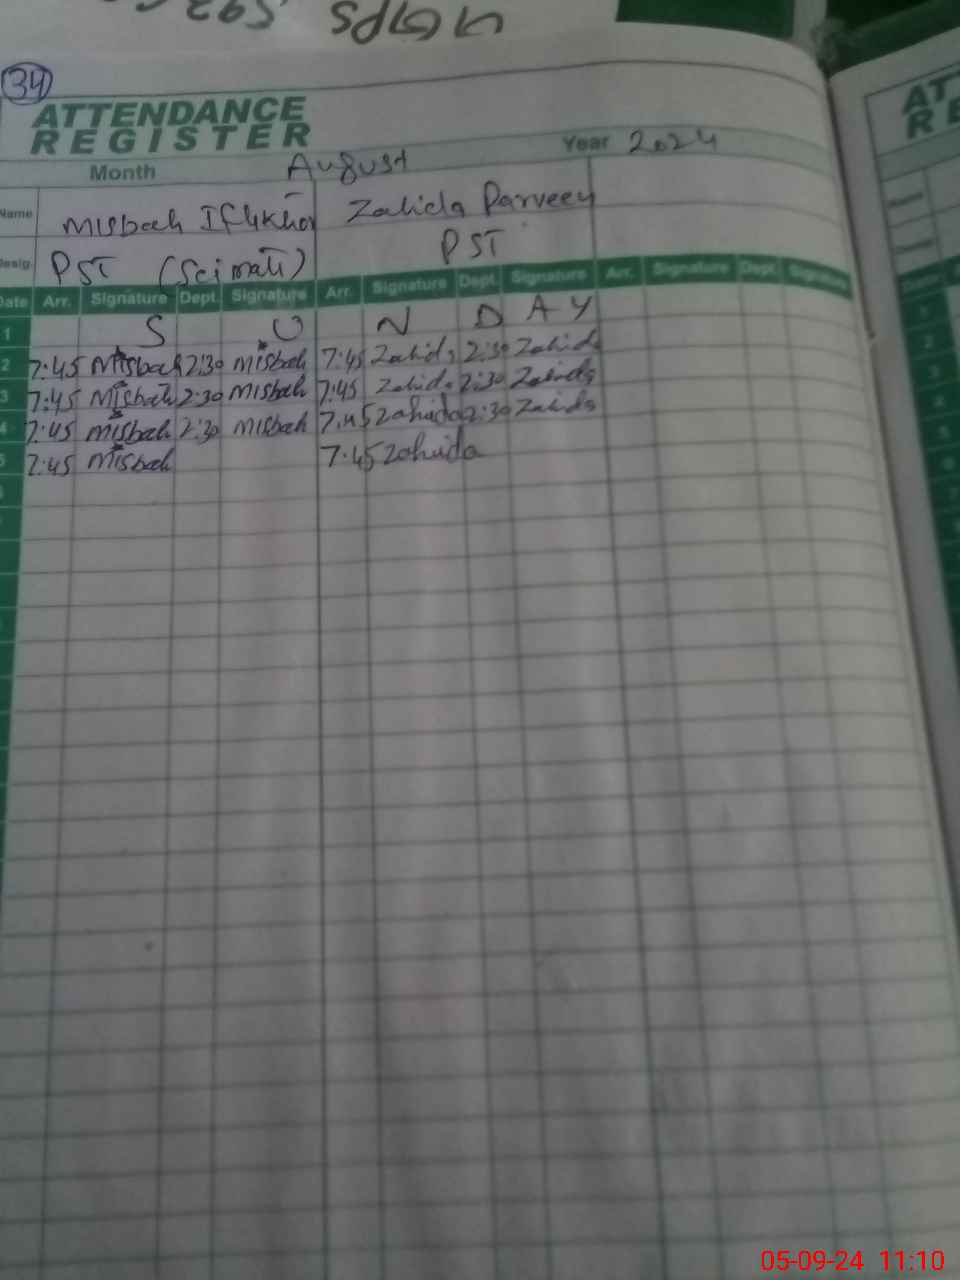 34
ATTENDANCE
REGISTER
Month August Year 2024
Name Misbah Iftikhar Zahida Parveen
Desig. PST (Sci math) PST
Date Arr. Signature Dept. Signature Arr. Signature Dept. Signature Arr. Signature Dept. Signature
1 S U N D A Y
2 7:45 Misbah 2:30 Misbah 7:45 Zahida 2:30 Zahida
3 7:45 Misbah 2:30 Misbah 7:45 Zahida 2:30 Zahida
4 7:45 Misbah 2:30 Misbah 7:45 Zahida 2:30 Zahida
5 7:45 Misbah 7:45 Zahida
05-09-24 11:10